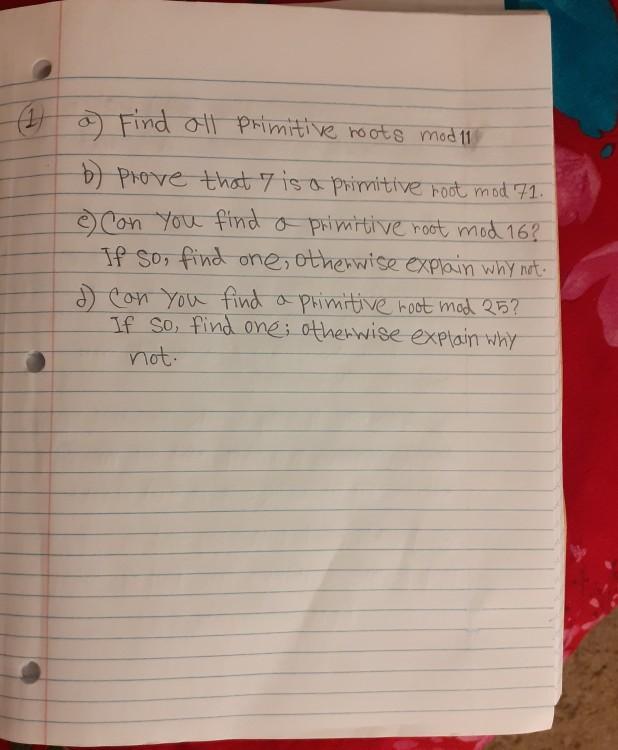 (1) a) Find all primitive roots mod 11
b) Prove that 7 is a primitive root mod 71.
c) Can you find a primitive root mod 16?
If so, find one, otherwise explain why not.
d) Can you find a primitive root mod 25?
If so, find one; otherwise explain why
not.